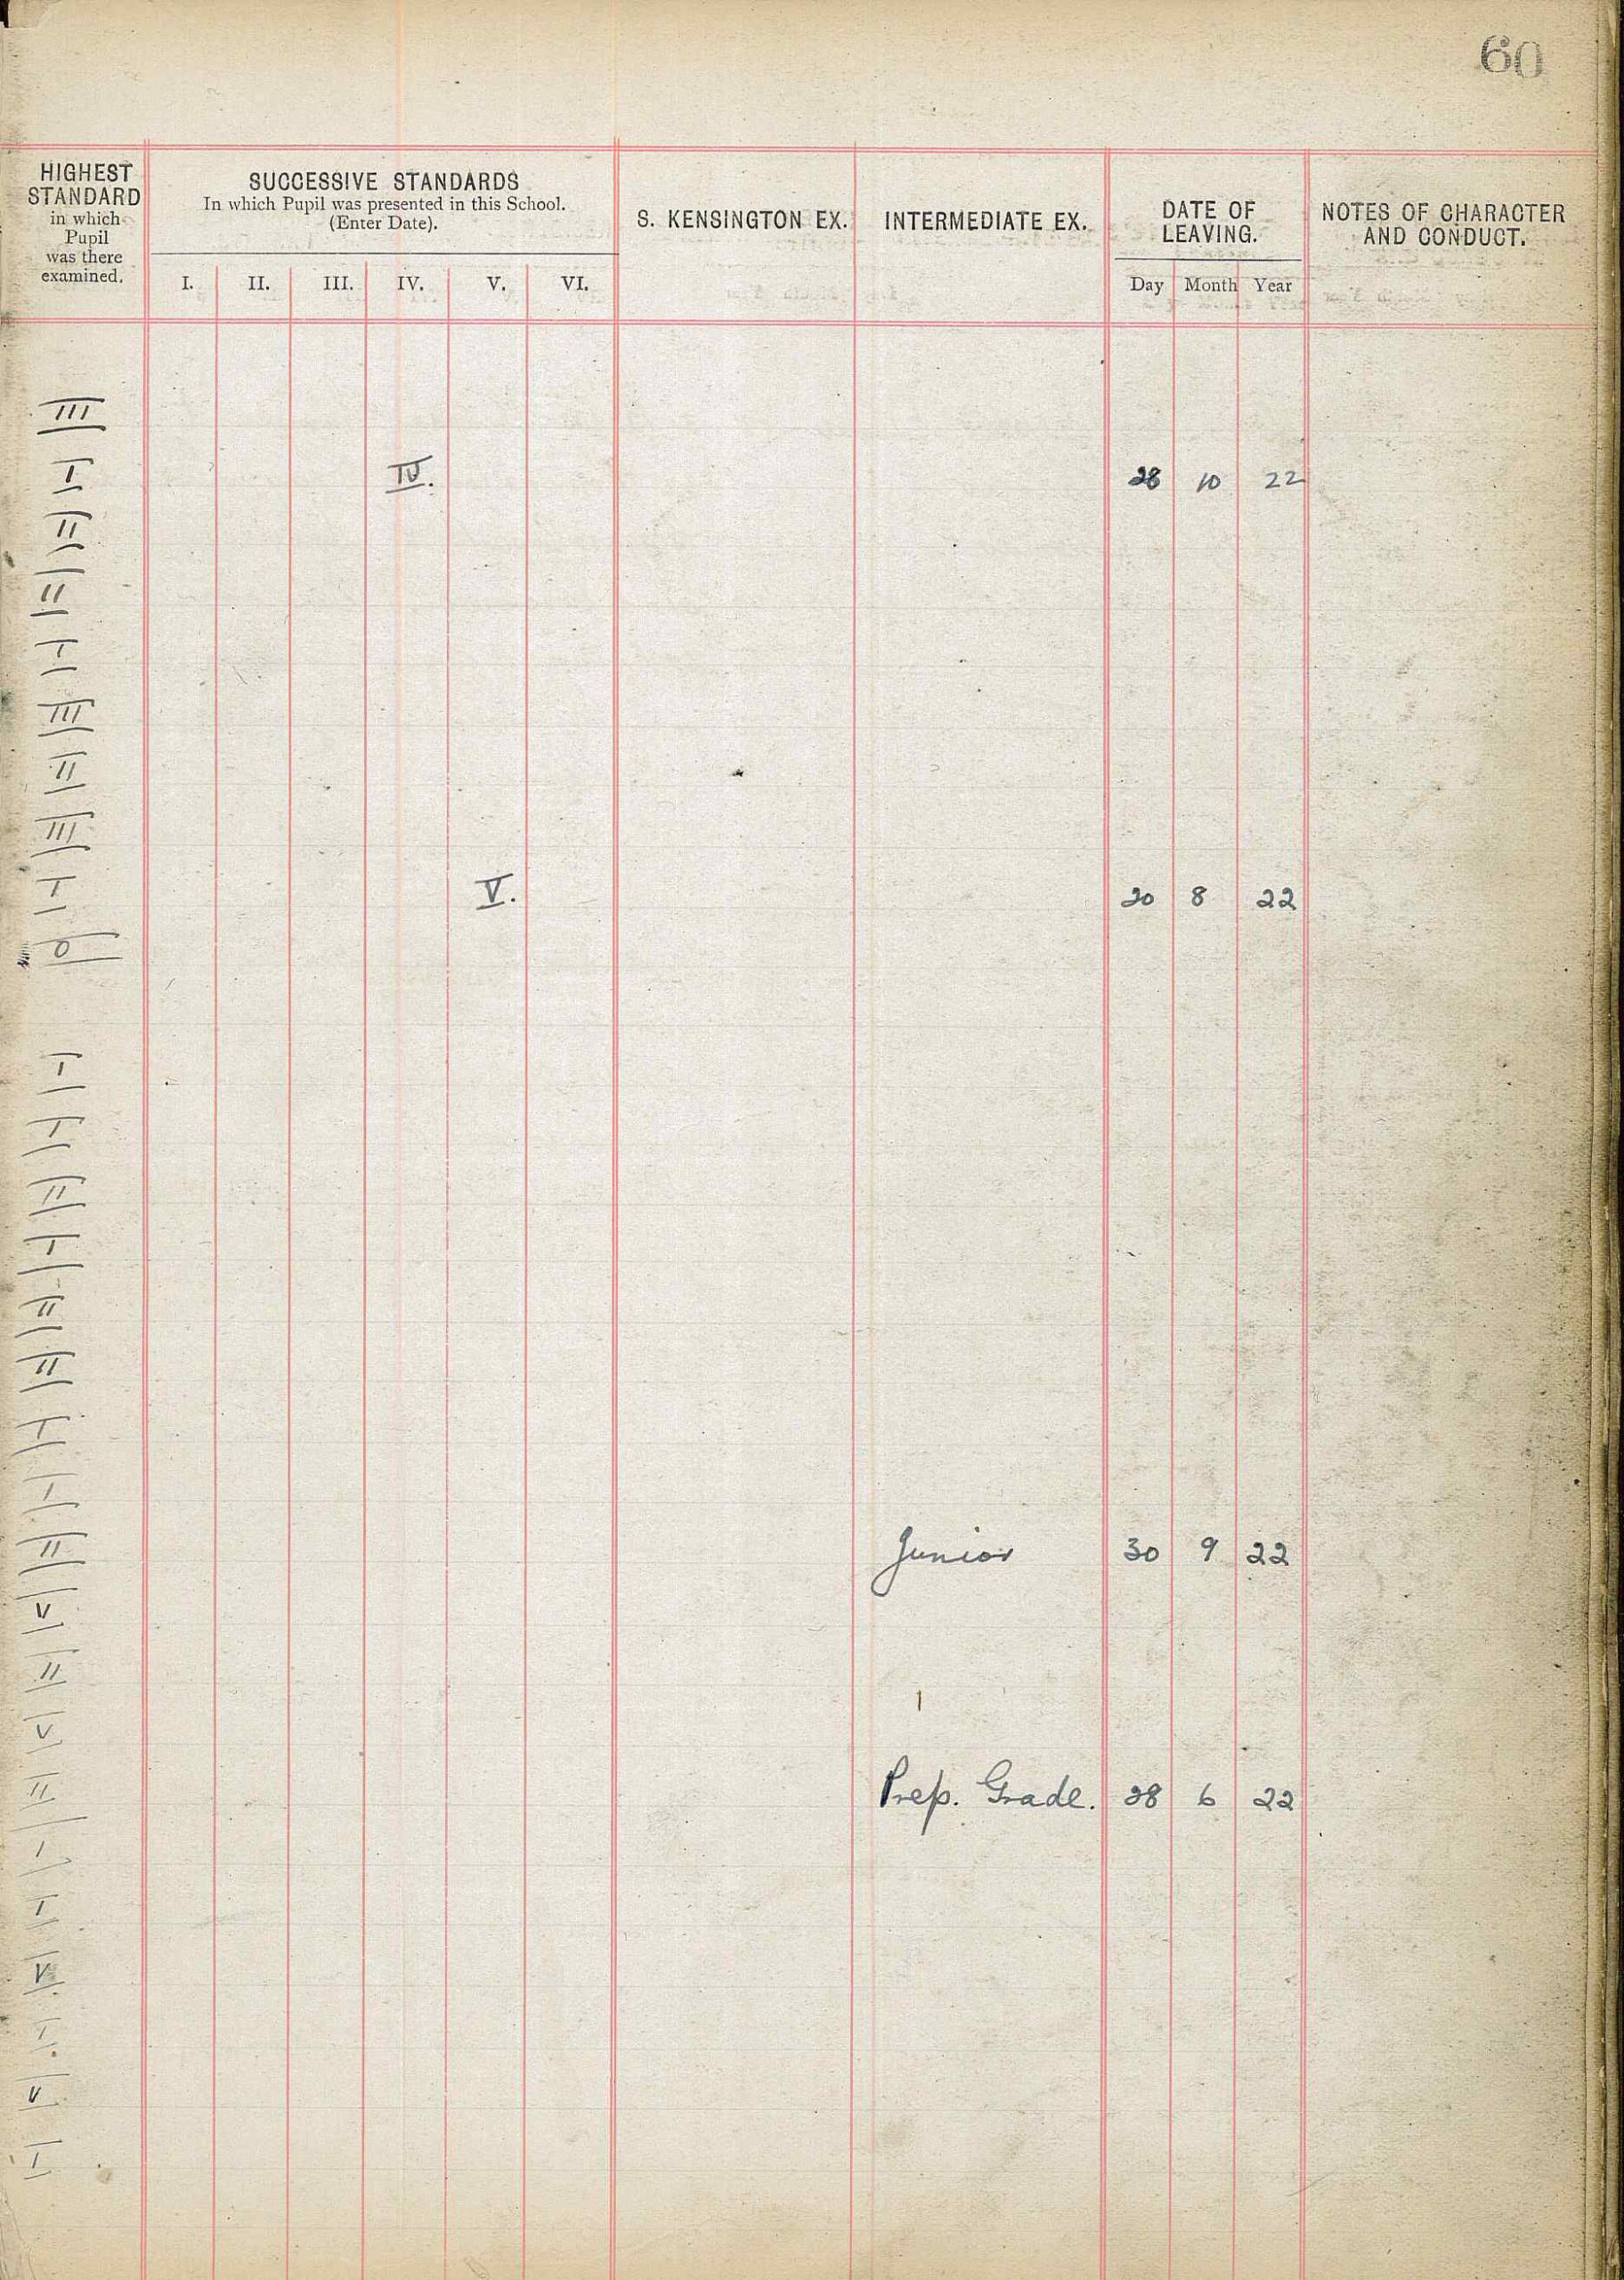 60
HIGHEST STANDARD in which Pupil was there examined.
SUCCESSIVE STANDARDS
In which Pupil was presented in this School.
(Enter Date).
I. II. III. IV. V. VI.
S. KENSINGTON EX.
INTERMEDIATE EX.
DATE OF LEAVING.
Day Month Year
NOTES OF CHARACTER AND CONDUCT.
III
I IV. 28 10 22
II
II
I
III
II
III
I V. 20 8 22
0
I
I
II
I
II
II
I
I
II Junior 30 9 22
V
II
V
II Prep. Grade. 28 6 22
I
I
V
I
V
I